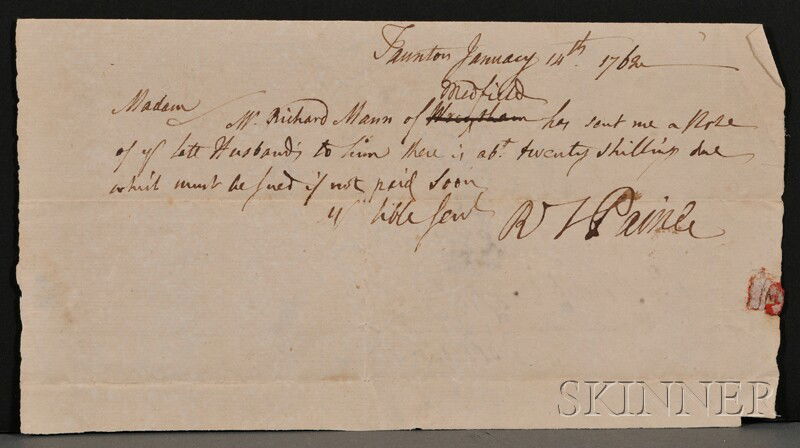 Taunton January 14th. 1762
Medfield
Madam
Mr. Richard Mann of Wrentham has sent me a Note
of yr late Husband's to him there is abt. twenty shillings due
which must be sued if not paid soon
yr hble Servt R T Paine
SKINNER